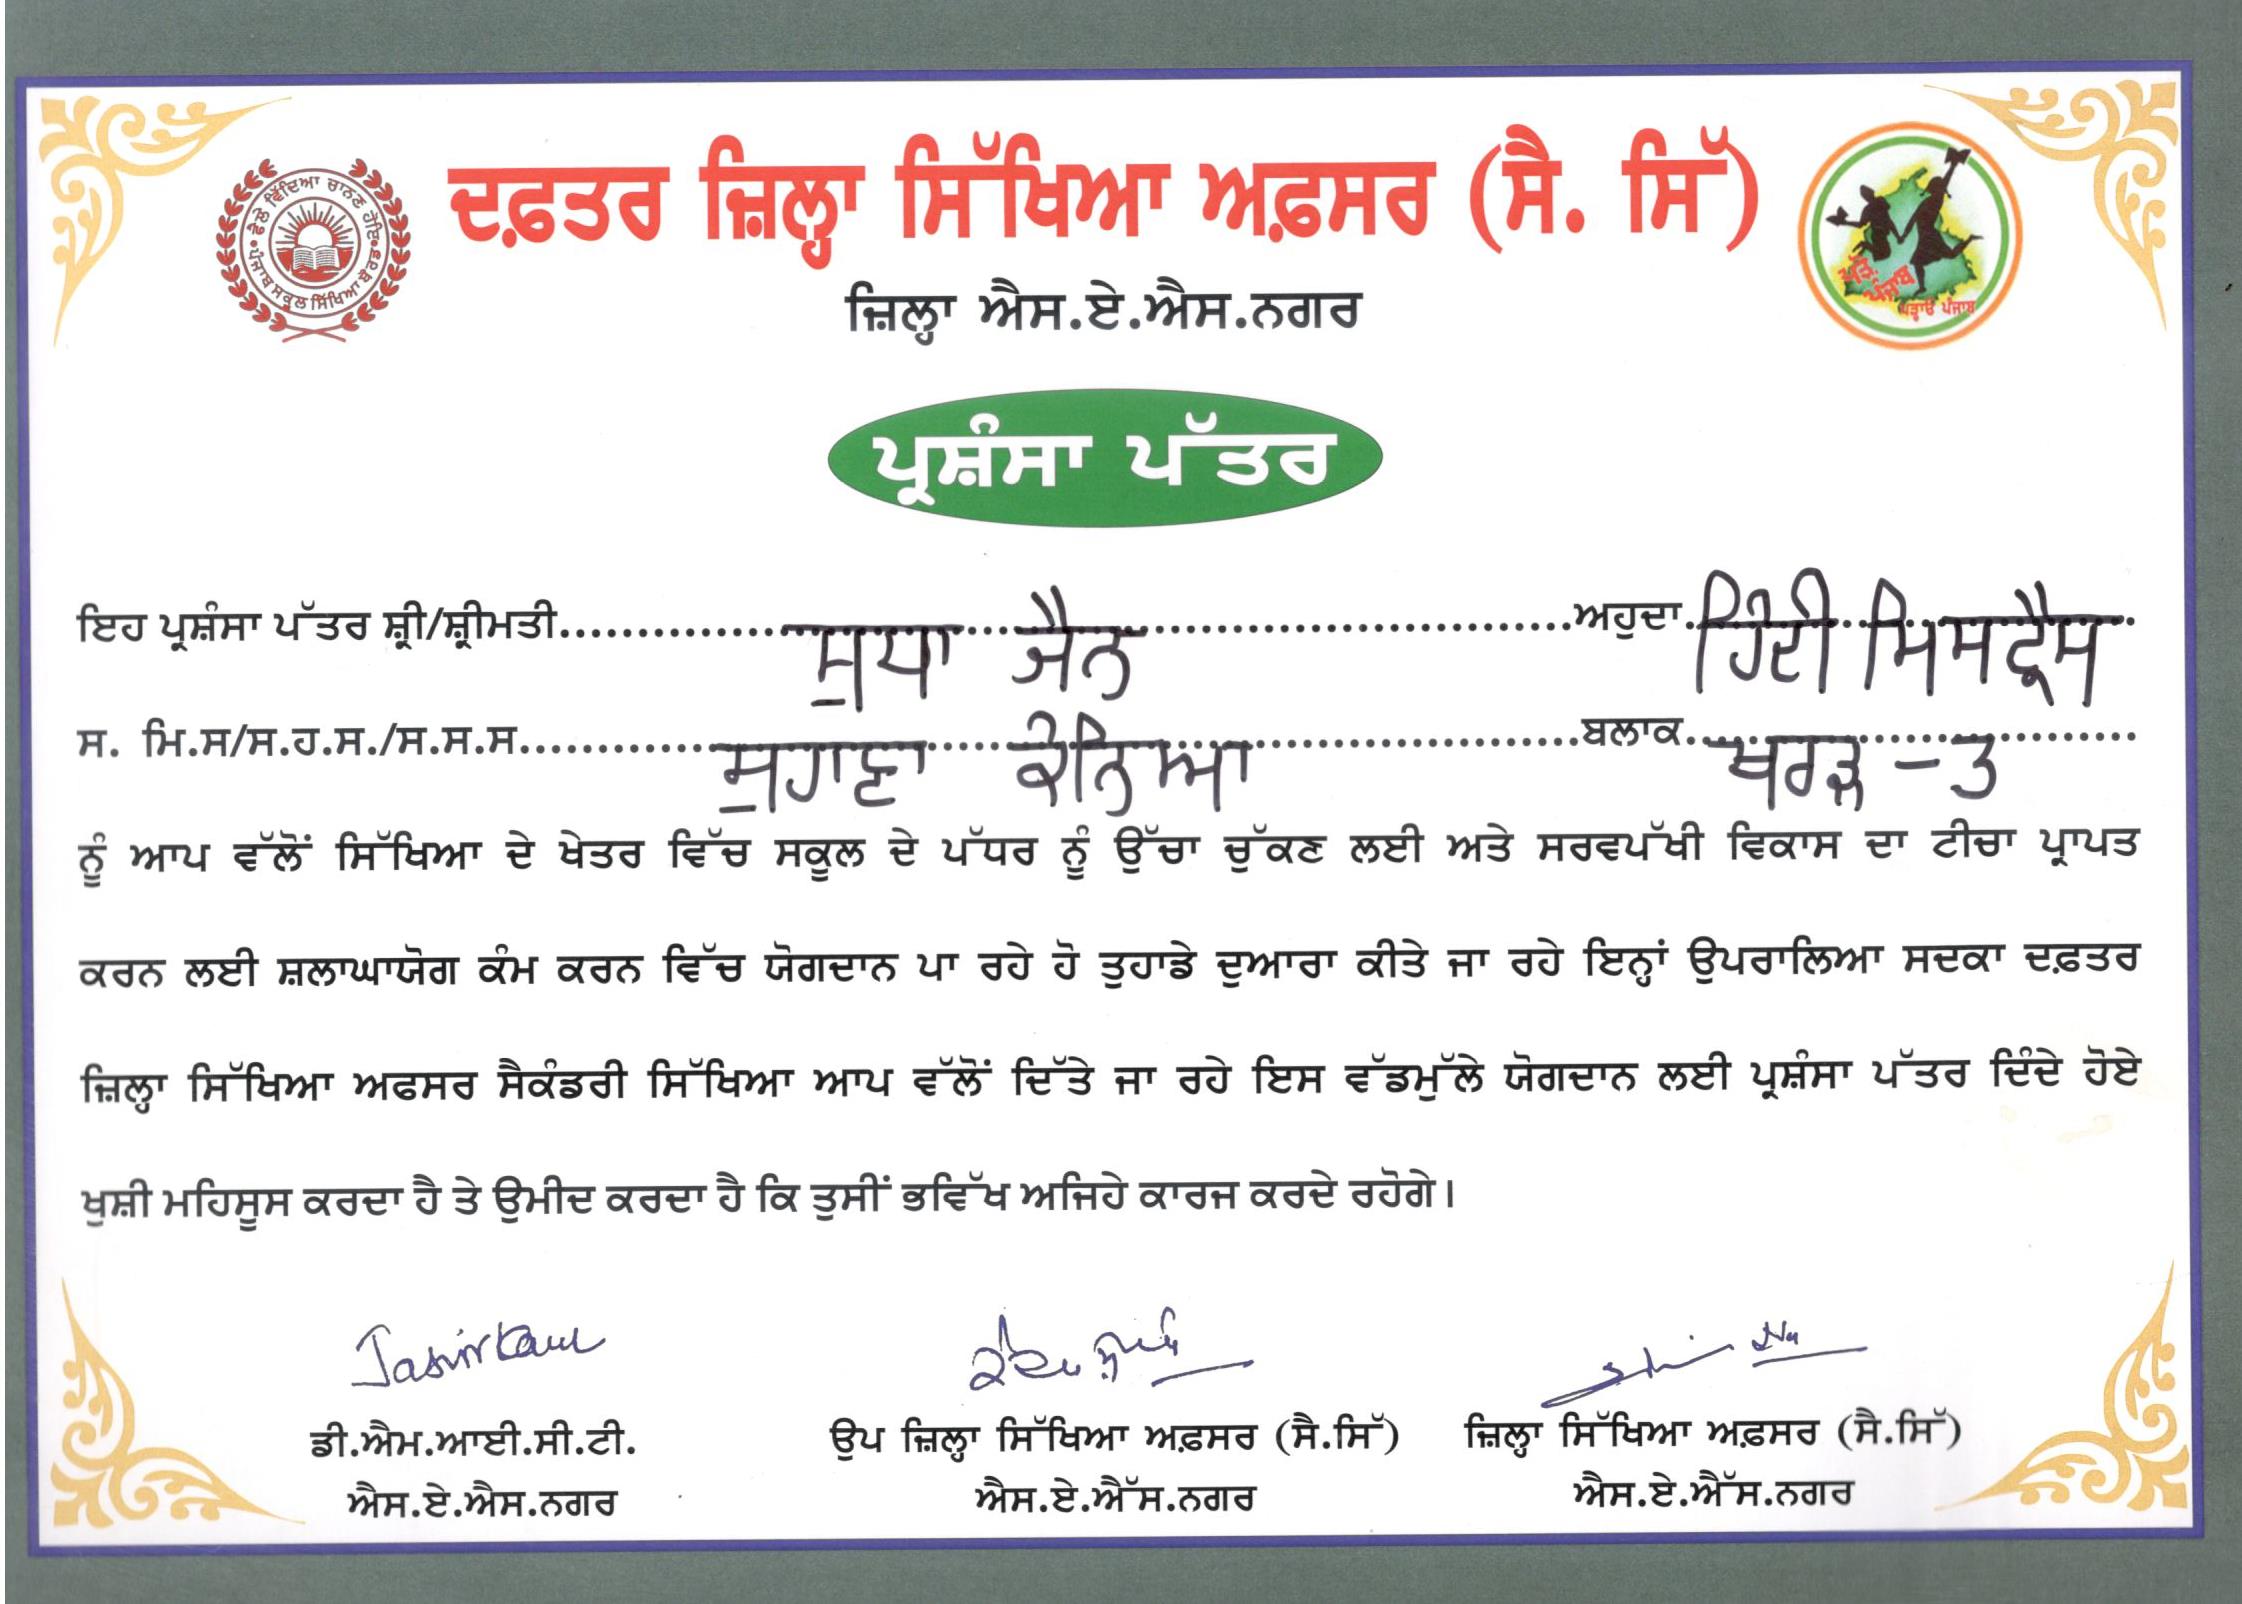 ਫੈਲੇ ਵਿੱਦਿਆ ਚਾਨਣ ਹੋਇ
ਪੰਜਾਬ ਸਕੂਲ ਸਿੱਖਿਆ ਬੋਰਡ
ਦਫ਼ਤਰ ਜ਼ਿਲ੍ਹਾ ਸਿੱਖਿਆ ਅਫ਼ਸਰ (ਸੈ. ਸਿੱ)
ਪੜ੍ਹੋ ਪੰਜਾਬ
ਪੜ੍ਹਾਓ ਪੰਜਾਬ
ਜ਼ਿਲ੍ਹਾ ਐਸ.ਏ.ਐਸ.ਨਗਰ
ਪ੍ਰਸ਼ੰਸਾ ਪੱਤਰ
ਇਹ ਪ੍ਰਸ਼ੰਸਾ ਪੱਤਰ ਸ਼੍ਰੀ/ਸ਼੍ਰੀਮਤੀ ਸੁਧਾ ਜੈਨ ਅਹੁਦਾ ਹਿੰਦੀ ਮਿਸਟ੍ਰੈਸ
ਸ. ਮਿ.ਸ/ਸ.ਹ.ਸ./ਸ.ਸ.ਸ ਸੁਹਾਣਾ ਕੰਨਿਆ ਬਲਾਕ ਖਰੜ -੩
ਨੂੰ ਆਪ ਵੱਲੋਂ ਸਿੱਖਿਆ ਦੇ ਖੇਤਰ ਵਿੱਚ ਸਕੂਲ ਦੇ ਪੱਧਰ ਨੂੰ ਉੱਚਾ ਚੁੱਕਣ ਲਈ ਅਤੇ ਸਰਵਪੱਖੀ ਵਿਕਾਸ ਦਾ ਟੀਚਾ ਪ੍ਰਾਪਤ
ਕਰਨ ਲਈ ਸ਼ਲਾਘਾਯੋਗ ਕੰਮ ਕਰਨ ਵਿੱਚ ਯੋਗਦਾਨ ਪਾ ਰਹੇ ਹੋ ਤੁਹਾਡੇ ਦੁਆਰਾ ਕੀਤੇ ਜਾ ਰਹੇ ਇਨ੍ਹਾਂ ਉਪਰਾਲਿਆ ਸਦਕਾ ਦਫ਼ਤਰ
ਜ਼ਿਲ੍ਹਾ ਸਿੱਖਿਆ ਅਫਸਰ ਸੈਕੰਡਰੀ ਸਿੱਖਿਆ ਆਪ ਵੱਲੋਂ ਦਿੱਤੇ ਜਾ ਰਹੇ ਇਸ ਵੱਡਮੁੱਲੇ ਯੋਗਦਾਨ ਲਈ ਪ੍ਰਸ਼ੰਸਾ ਪੱਤਰ ਦਿੰਦੇ ਹੋਏ
ਖੁਸ਼ੀ ਮਹਿਸੂਸ ਕਰਦਾ ਹੈ ਤੇ ਉਮੀਦ ਕਰਦਾ ਹੈ ਕਿ ਤੁਸੀਂ ਭਵਿੱਖ ਅਜਿਹੇ ਕਾਰਜ ਕਰਦੇ ਰਹੋਗੇ।
ਡੀ.ਐਮ.ਆਈ.ਸੀ.ਟੀ. ਉਪ ਜ਼ਿਲ੍ਹਾ ਸਿੱਖਿਆ ਅਫ਼ਸਰ (ਸੈ.ਸਿੱ) ਜ਼ਿਲ੍ਹਾ ਸਿੱਖਿਆ ਅਫ਼ਸਰ (ਸੈ.ਸਿੱ)
ਐਸ.ਏ.ਐਸ.ਨਗਰ ਐਸ.ਏ.ਐੱਸ.ਨਗਰ ਐਸ.ਏ.ਐੱਸ.ਨਗਰ